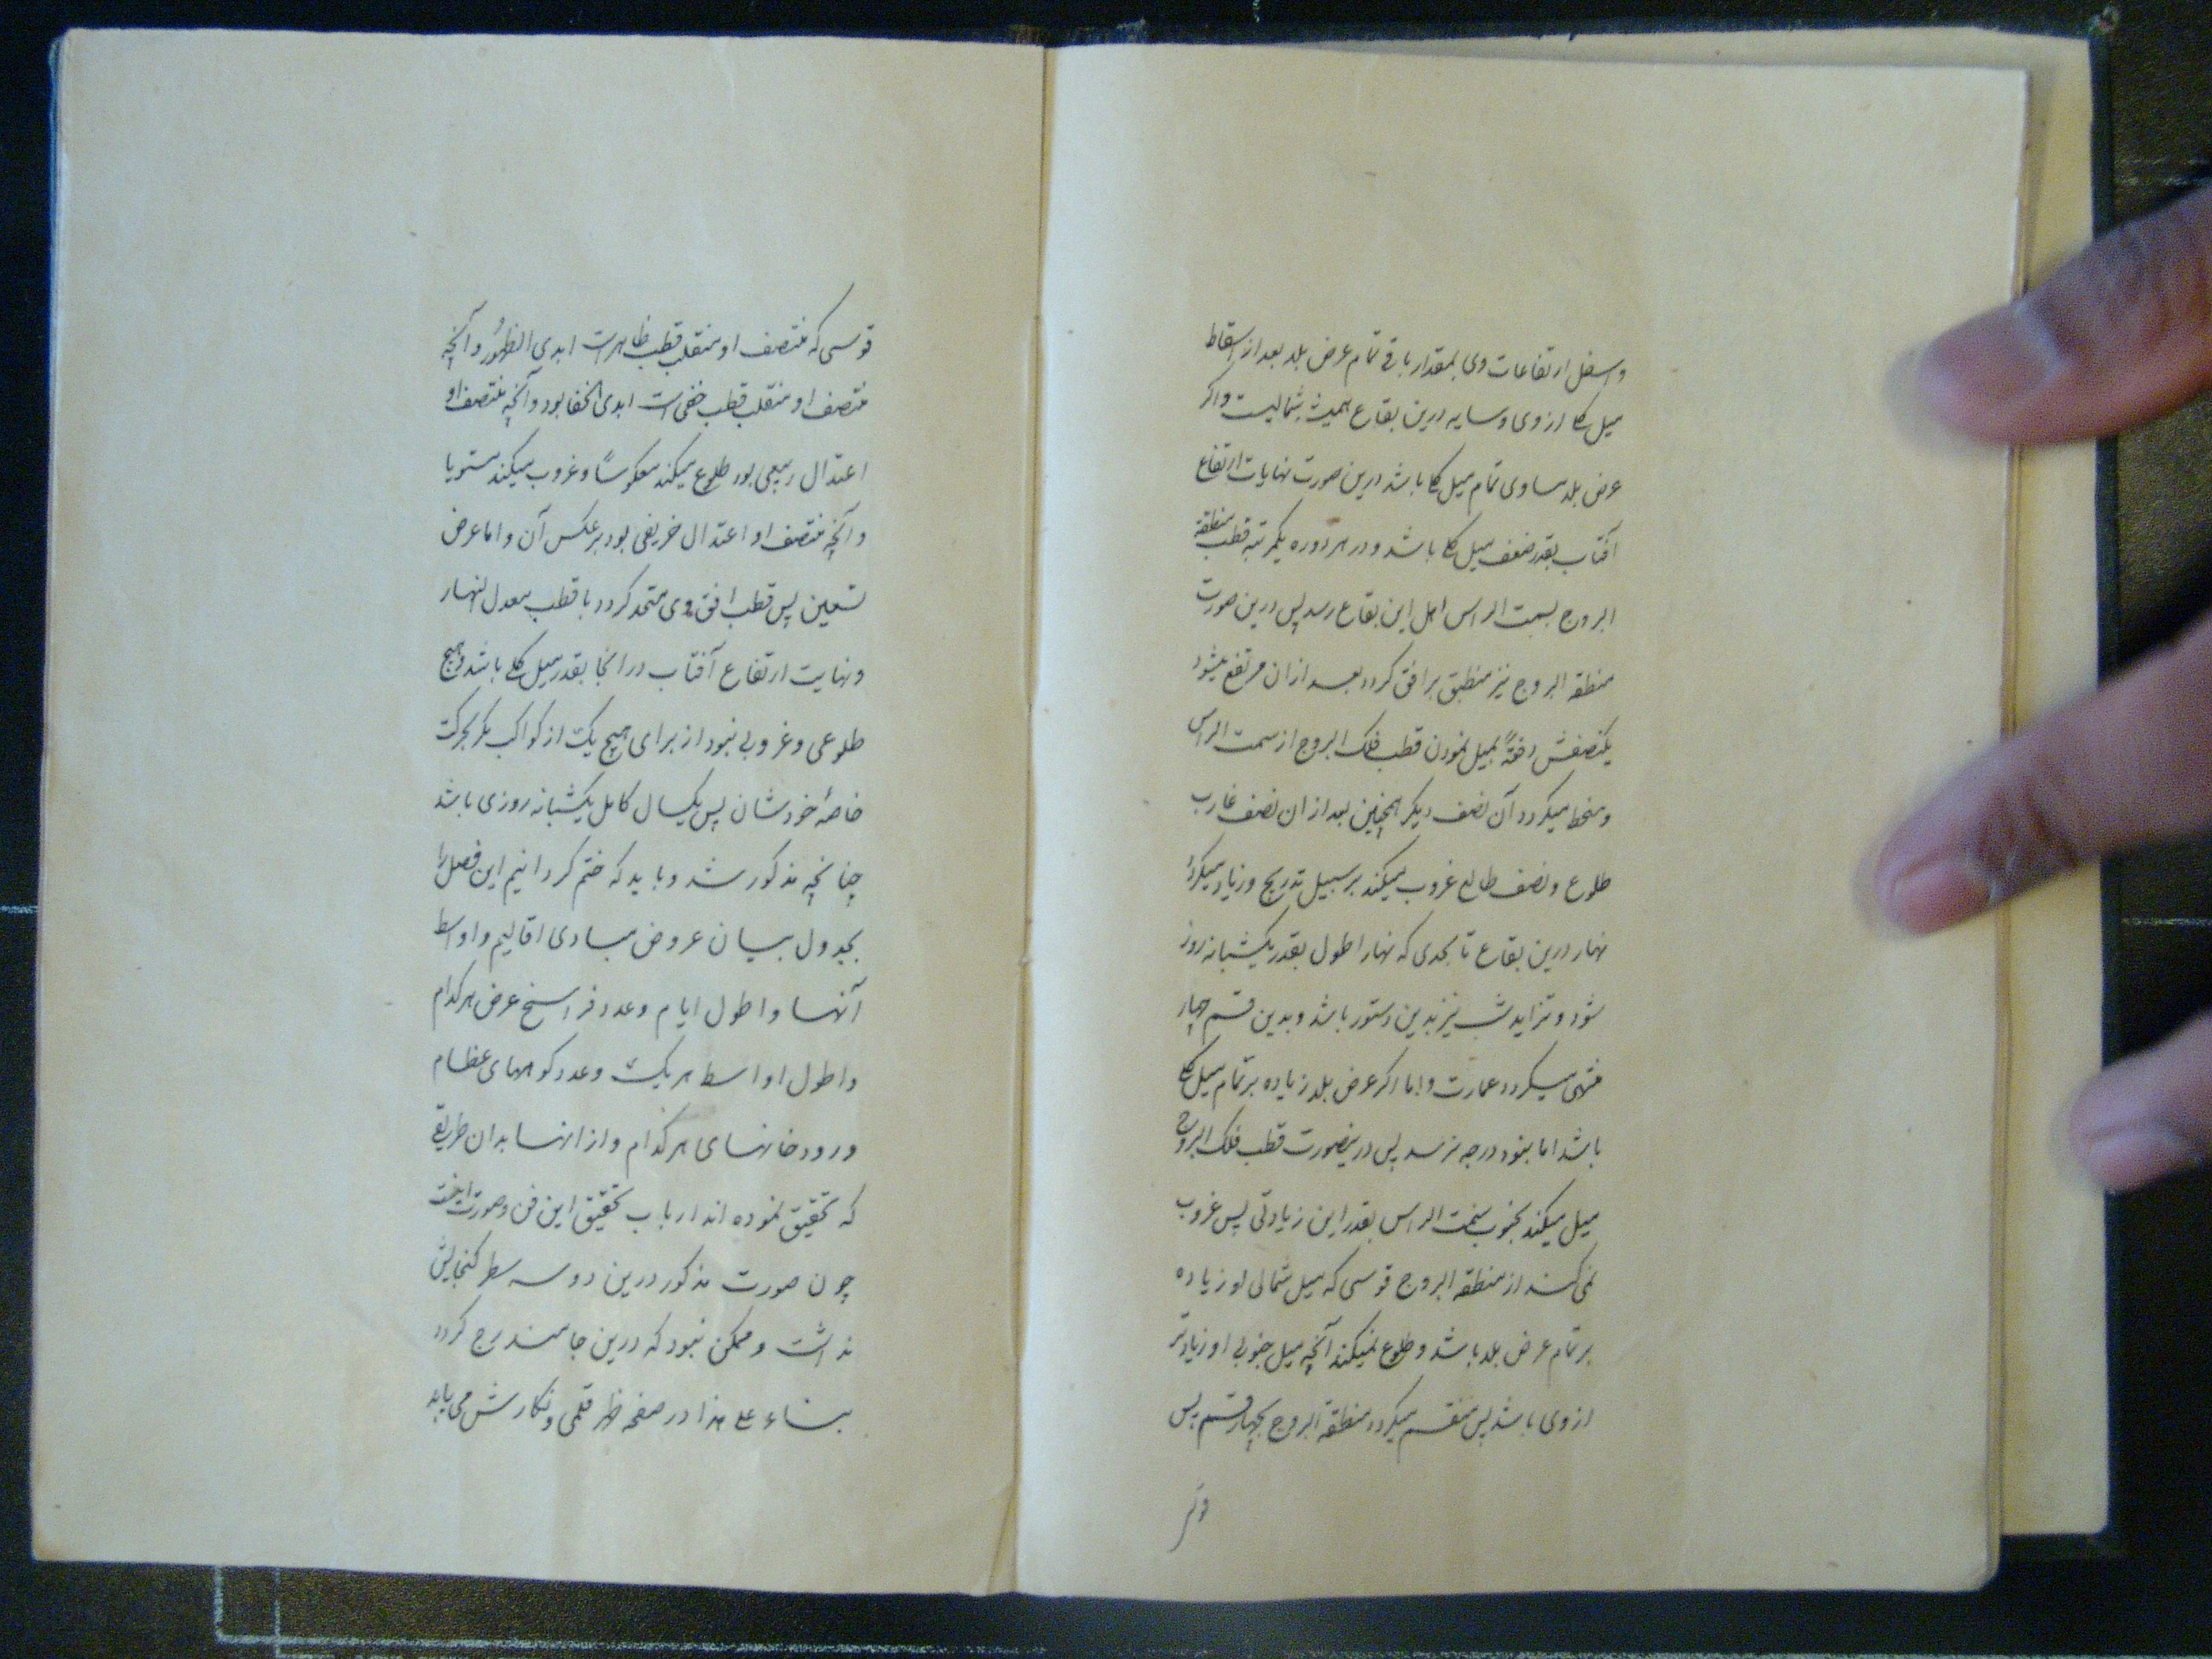 واسفل ارتفاعات وی بمقدار باقی تمام عرض بلد بعد از اسقاط
میل کلی از وی و سایه درین بقاع همیشه شمالیست و اکر
عرض بلد مساوی تمام میل کلی باشد درین صورت نهایات ارتفاع
آفتاب بقدر ضعف میل کلی باشد و در هر دوره یکمرتبه قطب منطقة
البروج بسمت الراس اهل این بقاع رسد پس درین صورت
منطقه البروج نیز منطبق بر افق کردد بعد از ان مرتفع میشود
یکنصفش دفعةً بمیل نمودن قطب فلک البروج از سمت الراس
و منحط میکردد آن نصف دیکر همچنین بعد از ان نصف غارب
طلوع و نصف طالع غروب میکند بر سبیل تدریج و زیاد میکردد
نهار درین بقاع تا بحدی که نهار اطول بقدر یکشبانه روز
شود و تزاید شب نیز بدین دستور باشد و بدین قسم چهار
منتهی میکردد عمارت و اما اکر عرض بلد زیاده بر تمام میل کلی
باشد اما بنود درجه نرسد پس درینصورت قطب فلک البروج
میل میکند بجنوب سمت الراس بقدر این زیادتی پس غروب
نمی کند از منطقه البروج قوسی که میل شمالی او زیاده
بر تمام عرض بلد باشد و طلوع نمیکند آنچه میل جنوبی او زیادتر
از وی باشد پس منقسم میکردد منطقة البروج بچهار قسم پس
قوسی که منتصف او منقلب قطب ظاهر است ابدی الظهُور و آنچه
منتصف او منقلب قطب خفی است ابدی الخفا بود و آنچه منتصف او
اعتدال ربیعی بود طلوع میکند معکوساً و غروب میکند مستویا
و آنچه منتصف او اعتدال خریفی بود بر عکس آن و اما عرض
تسعین پس قطب افق وی متحد کردد با قطب معدل النهار
و نهایت ارتفاع آفتاب در انجا بقدر میل کلی باشد و هیچ
طلوعی و غروبی نبود از برای هیچ یک از کواکب مکر بحرکت
خاصهٔ خودشان پس یکسال کامل یکشبانه روزی باشد
چنانچه مذکور شد و باید که ختم کردانیم این فصل را
بجدول بیان عروض مبادی اقالیم و اواسط
آنها و اطول ایام و عدد فراسخ عرض هر کدام
و اطول اواسط هر یک و عدد کوههای عظام
و رودخانهای هر کدام و از انها بدان طریقی
که تحقیق نموده اند ارباب تحقیق این فن و صورت
چون صورت مذکور درین دو سه سطر کنجایش
نداشت و ممکن نبود که درین جا مندرج کردد
بناء علی هذا در صفحه ظهر قلمی و نکارش می یابد